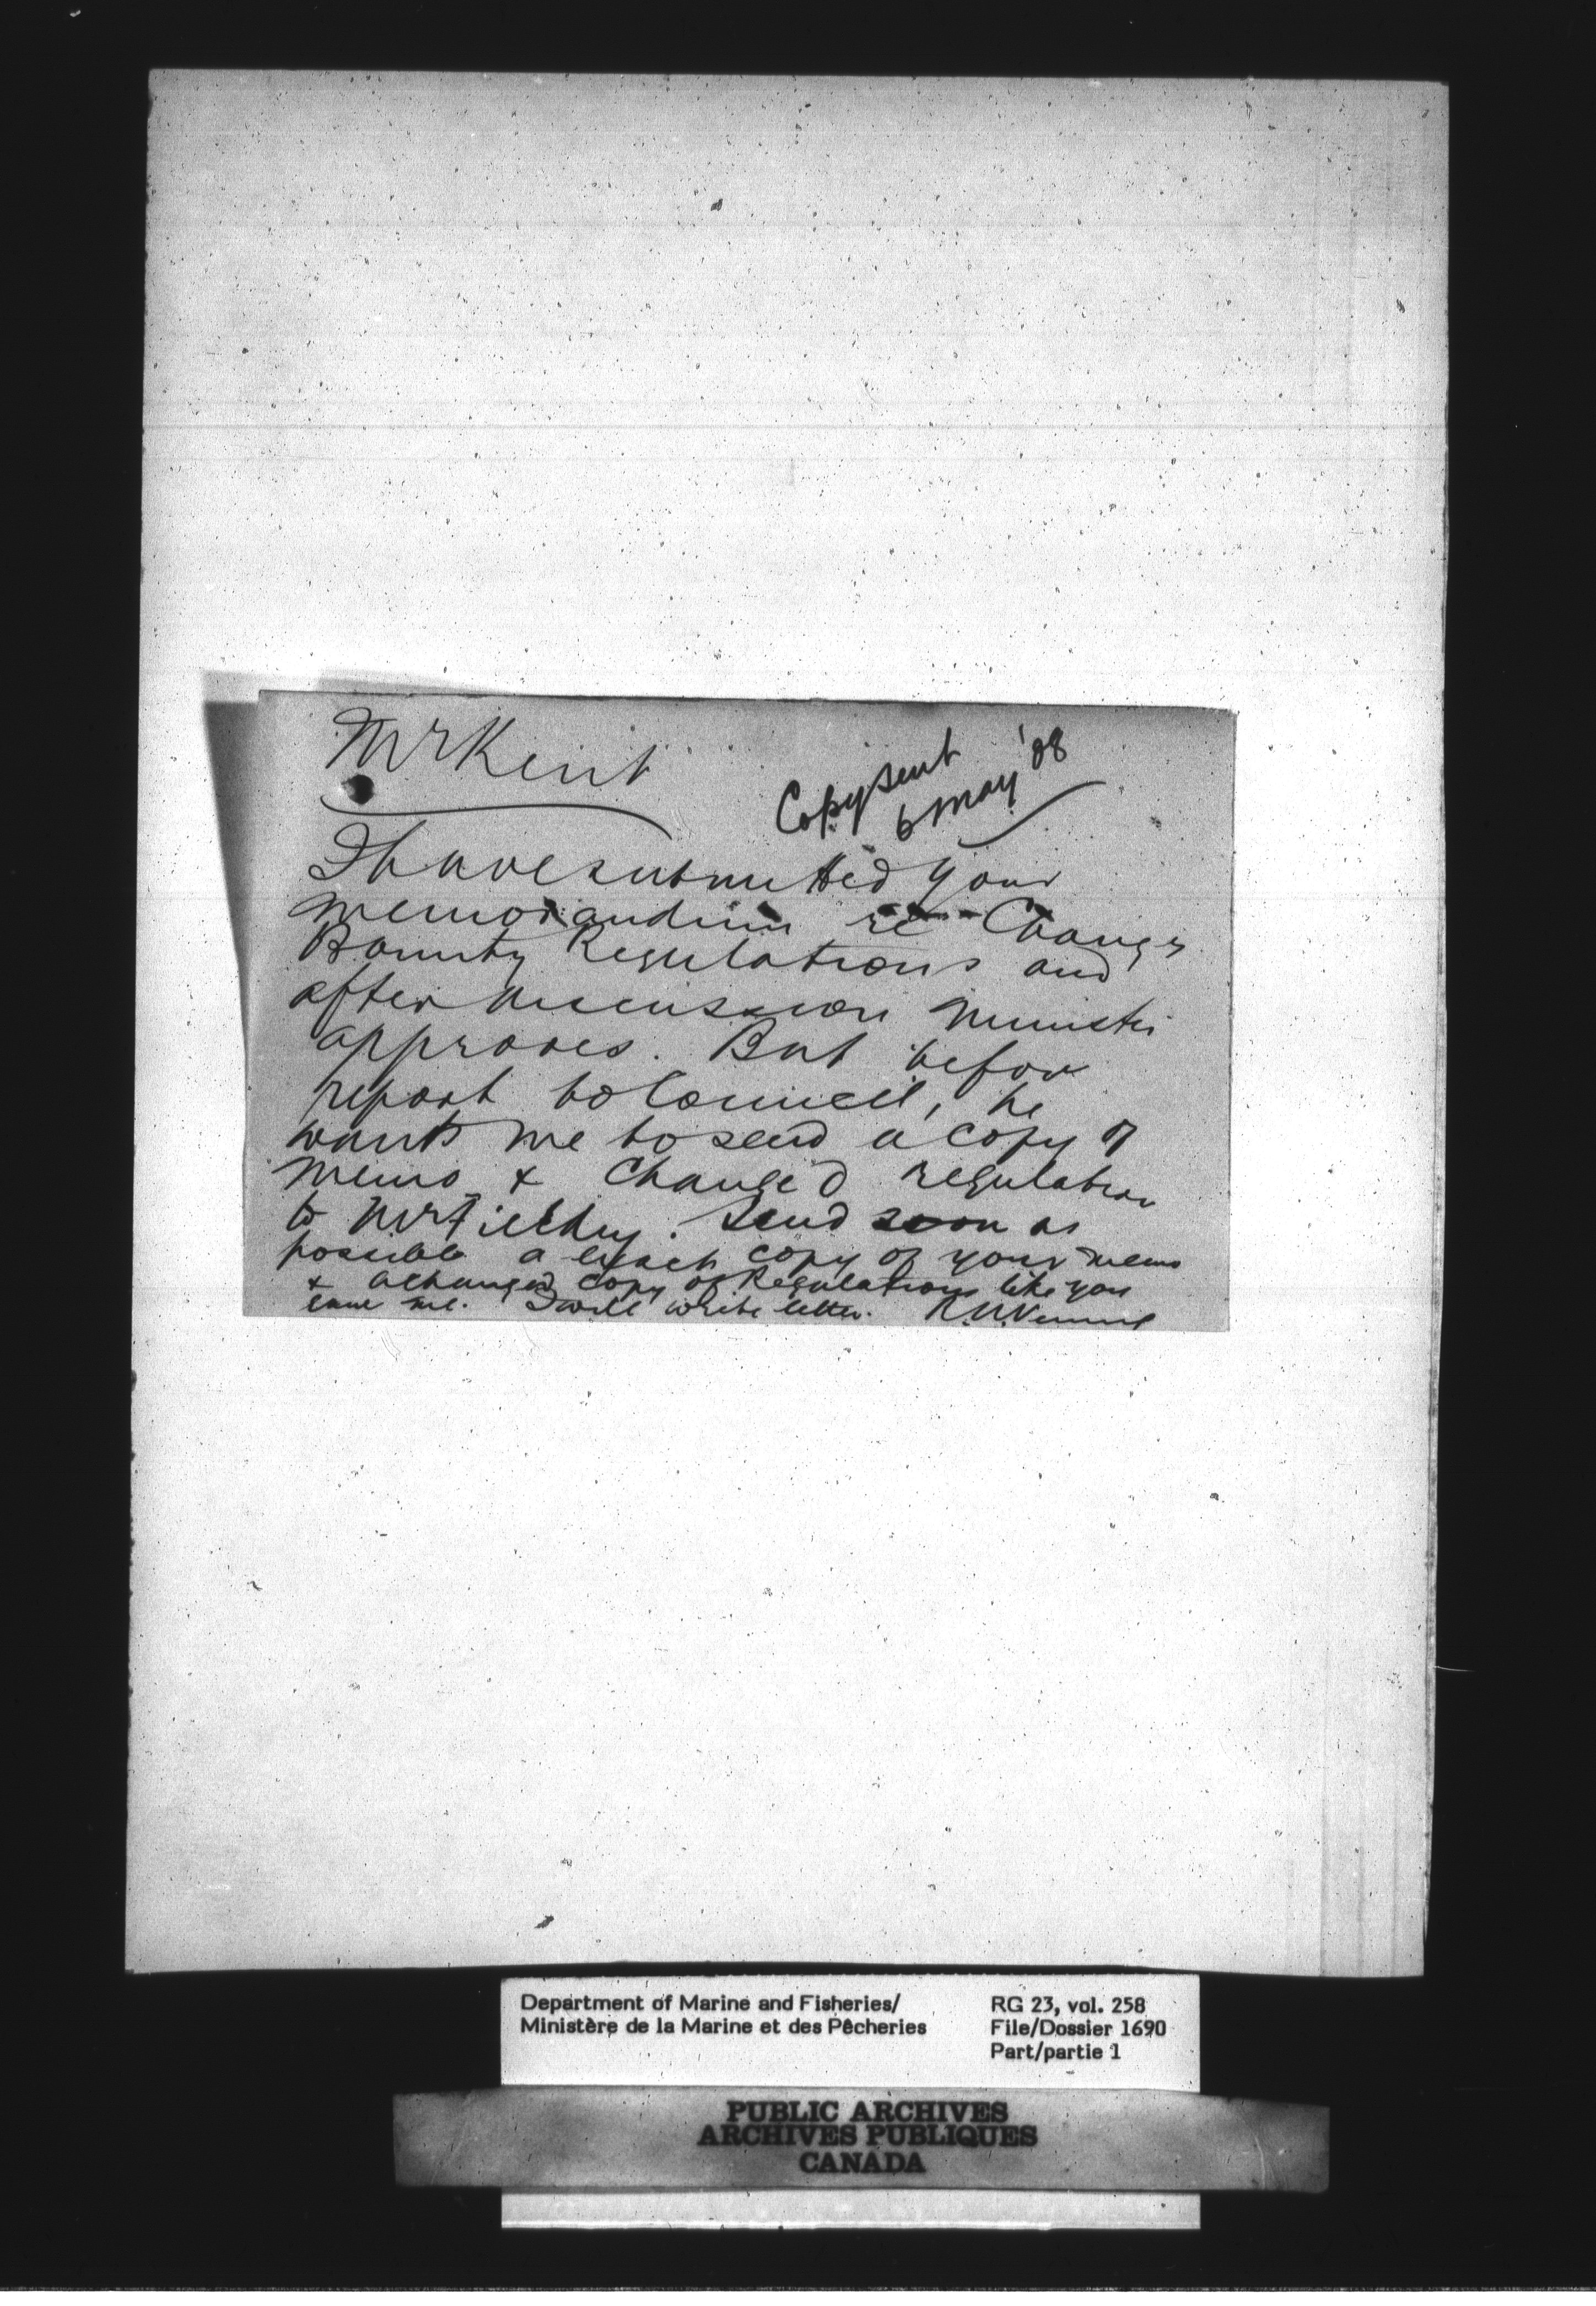 Mr Kent
Copy sent
6 May '08
I have submitted your
memorandum re Changes
Bounty Regulations and
after discussion Minister
approves. But before
report to Council, he
wants me to send a copy of
memo & Changed regulation
to Mr Fielding. Send soon as
possible a exact copy of your memo
& a changed copy of Regulations like you
gave me. I will write letter. R. N. Venning
Department of Marine and Fisheries/
Ministère de la Marine et des Pêcheries
RG 23, vol. 258
File/Dossier 1690
Part/partie 1
PUBLIC ARCHIVES
ARCHIVES PUBLIQUES
CANADA